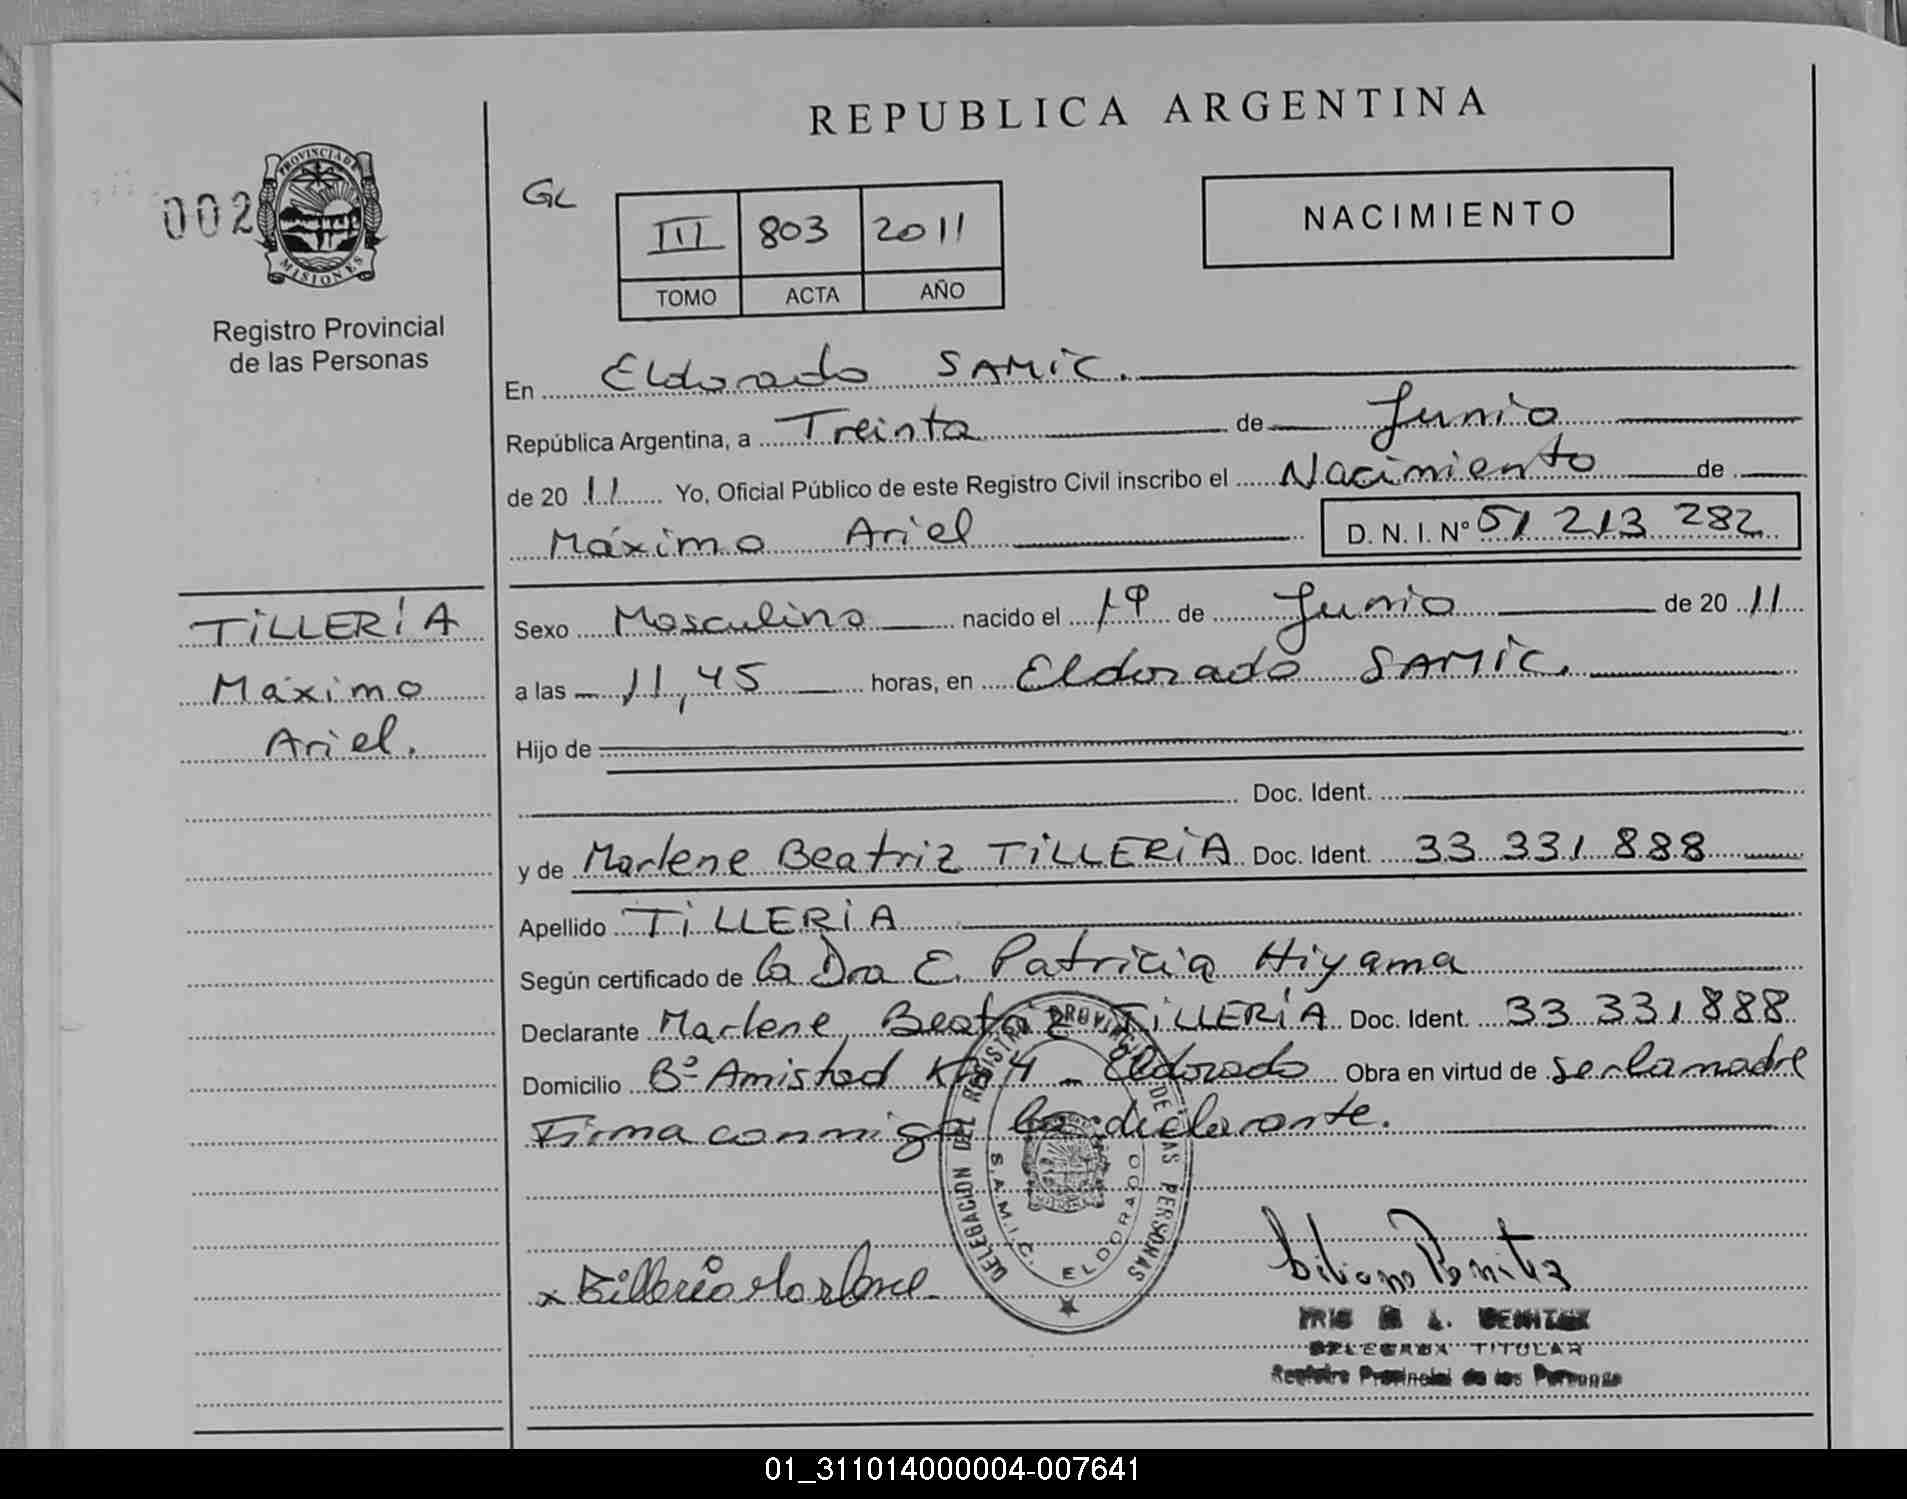 REPUBLICA ARGENTINA
002
PROVINCIA DE
MISIONES
Registro Provincial
de las Personas
GL
III 803 2011
TOMO ACTA AÑO
NACIMIENTO
En Eldorado SAMIC.
República Argentina, a Treinta de Junio
de 20 11 Yo, Oficial Público de este Registro Civil inscribo el Nacimiento de
Máximo Ariel D. N. I. Nº 51 213 282
TILLERÍA
Máximo
Ariel.
Sexo Masculino nacido el 1º de Junio de 20 11
a las 11,45 horas, en Eldorado SAMIC.
Hijo de
Doc. Ident.
y de Marlene Beatriz TILLERÍA Doc. Ident. 33 331 888
Apellido TILLERIA
Según certificado de la Dra E. Patricia Hiyama
Declarante Marlene Beatriz TILLERÍA Doc. Ident. 33 331 888
Domicilio Bº Amistad Km 4 - Eldorado Obra en virtud de ser la madre
Firma conmigo la declarante.
DELEGACION DEL REGISTRO PROVINCIAL DE LAS PERSONAS
S.A.M.I.C. ELDORADO
x Tilleria Marlene
BENITEZ
DELEGADA TITULAR
Registro Provincial de las Personas
01_311014000004-007641